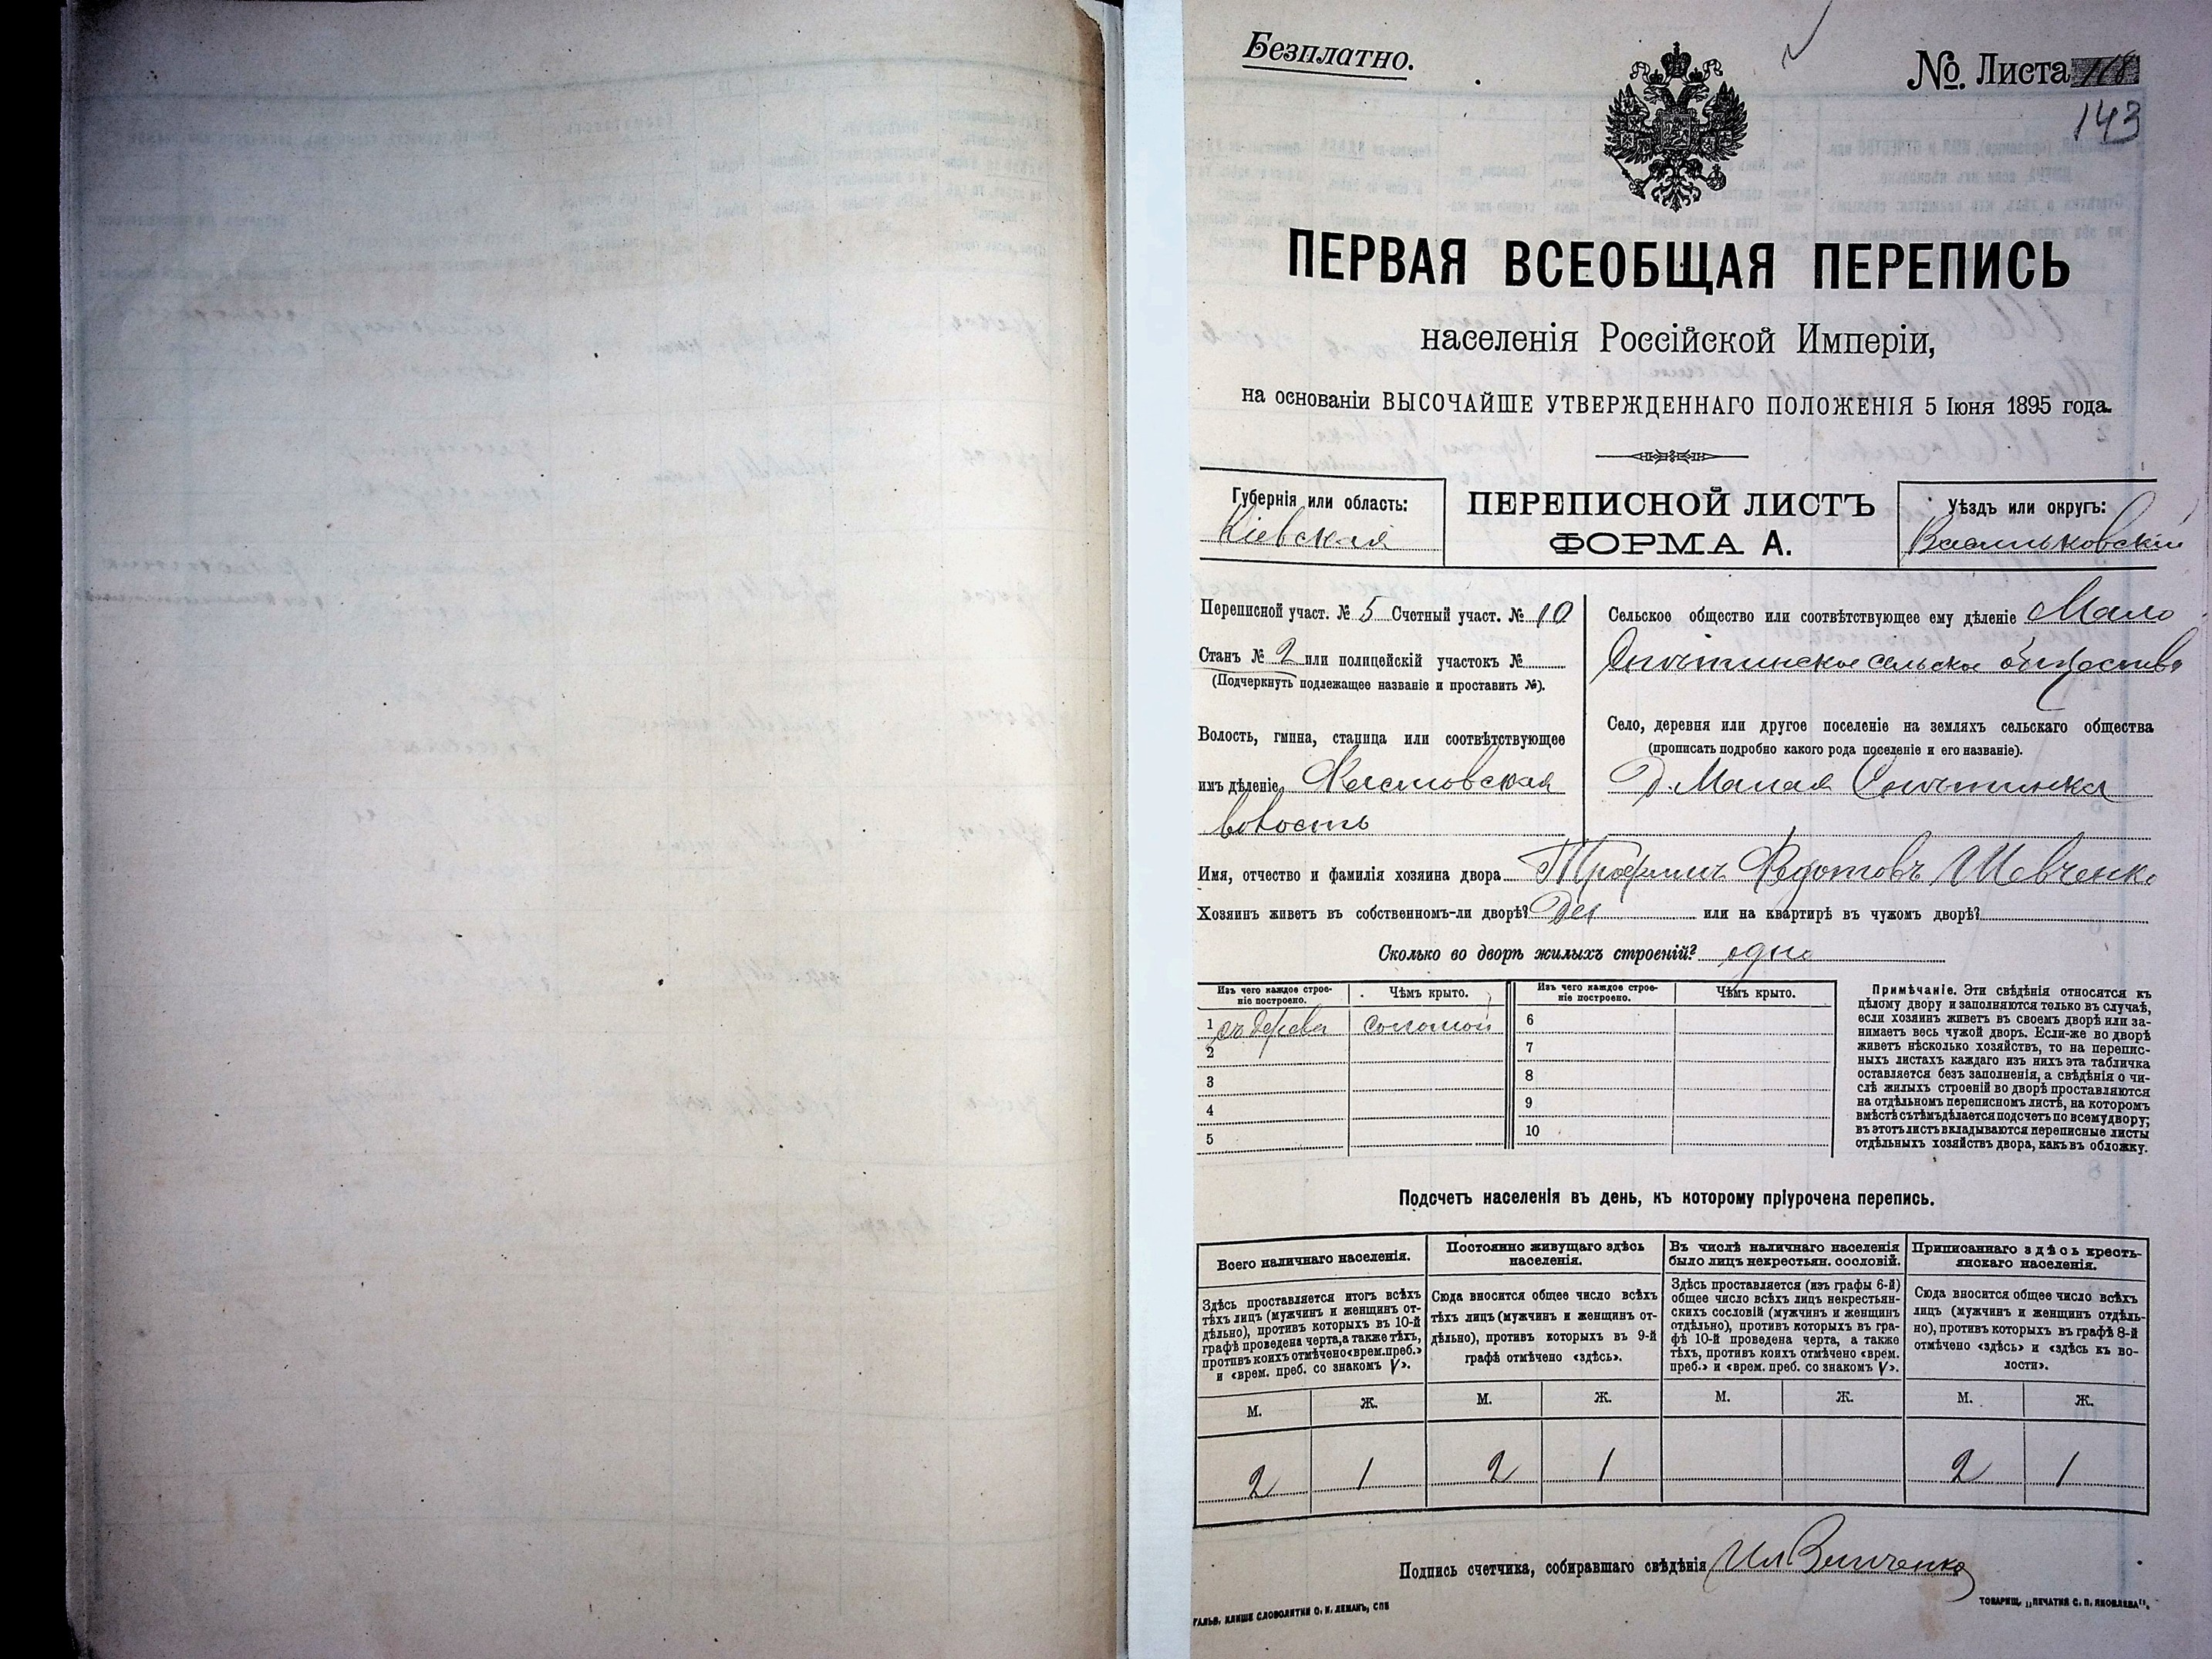 Безплатно.
№ Листа 118
143
ПЕРВАЯ ВСЕОБЩАЯ ПЕРЕПИСЬ
населенія Россійской Имперіи,
на основаніи ВЫСОЧАЙШЕ УТВЕРЖДЕННАГО ПОЛОЖЕНІЯ 5 Іюня 1895 года.
Губернія или область:
Кіевская
ПЕРЕПИСНОЙ ЛИСТЪ
ФОРМА А.
Уѣздъ или округъ:
Васильковскій
Переписной участ. № 5 Счетный участ. № 10
Станъ № 2 или полицейскій участокъ №
(Подчеркнуть подлежащее названіе и проставить №).
Волость, гмина, станица или соотвѣтствующее
имъ дѣленіе
волость
Сельское общество или соотвѣтствующее ему дѣленіе Мало
сельское общество
Село, деревня или другое поселеніе на земляхъ сельскаго общества
(прописать подробно какого рода поселеніе и его названіе).
Д. Малая
Имя, отчество и фамилія хозяина двора Трофимъ Федотовъ Шевченко
Хозяинъ живетъ въ собственномъ-ли дворѣ? Да или на квартирѣ въ чужомъ дворѣ?
Сколько во дворѣ жилыхъ строеній? одно
Изъ чего каждое строе-
ніе построено.
Чѣмъ крыто.
Изъ чего каждое строе-
ніе построено.
Чѣмъ крыто.
1 дерева соломой 6
2 7
3 8
4 9
5 10
Примѣчаніе. Эти свѣдѣнія относятся къ
цѣлому двору и заполняются только въ случаѣ,
если хозяинъ живетъ въ своемъ дворѣ или за-
нимаетъ весь чужой дворъ. Если-же во дворѣ
живетъ нѣсколько хозяйствъ, то на перепис-
ныхъ листахъ каждаго изъ нихъ эта табличка
оставляется безъ заполненія, а свѣдѣнія о чи-
слѣ жилыхъ строеній во дворѣ проставляются
на отдѣльномъ переписномъ листѣ, на которомъ
вмѣстѣ съ тѣмъ дѣлается подсчетъ по всему двору;
въ этотъ листъ вкладываются переписные листы
отдѣльныхъ хозяйствъ двора, какъ въ обложку.
Подсчетъ населенія въ день, къ которому пріурочена перепись.
Всего наличнаго населенія.
Здѣсь проставляется итогъ всѣхъ
тѣхъ лицъ (мужчинъ и женщинъ от-
дѣльно), противъ которыхъ въ 10-й
графѣ проведена черта, а также тѣхъ,
противъ коихъ отмѣчено «врем. преб.»
и «врем. преб. со знакомъ V».
Постоянно живущаго здѣсь
населенія.
Сюда вносится общее число всѣхъ
тѣхъ лицъ (мужчинъ и женщинъ от-
дѣльно), противъ которыхъ въ 9-й
графѣ отмѣчено «здѣсь».
Въ числѣ наличнаго населенія
было лицъ некрестьян. сословій.
Здѣсь проставляется (изъ графы 6-й)
общее число всѣхъ лицъ некрестьян-
скихъ сословій (мужчинъ и женщинъ
отдѣльно), противъ которыхъ въ гра-
фѣ 10-й проведена черта, а также
тѣхъ, противъ коихъ отмѣчено «врем.
преб.» и «врем. преб. со знакомъ V».
Приписаннаго здѣсь кресть-
янскаго населенія.
Сюда вносится общее число всѣхъ
лицъ (мужчинъ и женщинъ отдѣль-
но), противъ которыхъ въ графѣ 8-й
отмѣчено «здѣсь» и «здѣсь къ во-
лости».
М. Ж. М. Ж. М. Ж. М. Ж.
2 1 2 1 2 1
Подпись счетчика, собиравшаго свѣдѣнія
ГАЛЬВ. КЛИШЕ СЛОВОЛИТНИ О. И. ЛЕМАНЪ, СПБ
ТОВАРИЩ. „ПЕЧАТНЯ С. П. ЯКОВЛЕВА".